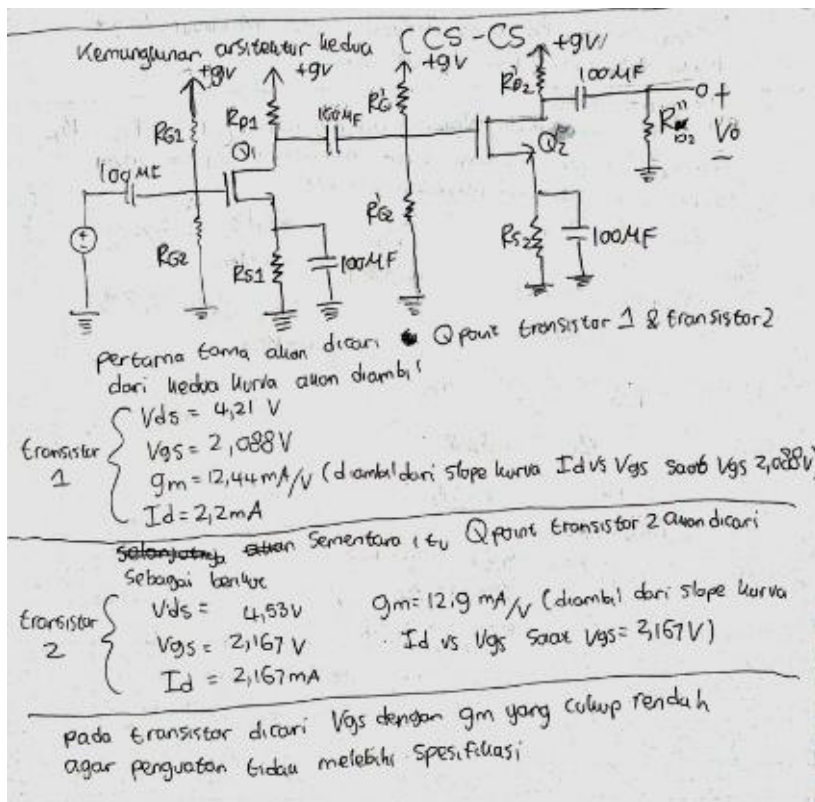 Kemungkinan arsitektur kedua (CS-CS
+9V
+9V
+9V
+9V
RG1
RD1
100MF
R'G1
R'D2
100MF
+
Vo
-
Q1
Q2
100MF
RG2
RS1
100MF
R'G2
RS2
100MF
pertama tama akan dicari Q point transistor 1 & transistor 2
dari kedua kurva akan diambil
transistor 1
Vds = 4,21 V
Vgs = 2,088 V
gm = 12,44 mA/V (diambil dari slope kurva Id vs Vgs saat Vgs 2,088 V)
Id = 2,2 mA
Sementara itu, Q point transistor 2 akan dicari
sebagai berikut
transistor 2
Vds = 4,53 V
Vgs = 2,167 V
Id = 2,167 mA
gm = 12,9 mA/V (diambil dari slope kurva
Id vs Vgs saat Vgs = 2,167 V)
pada transistor dicari Vgs dengan gm yang cukup rendah
agar penguatan tidak melebihi spesifikasi